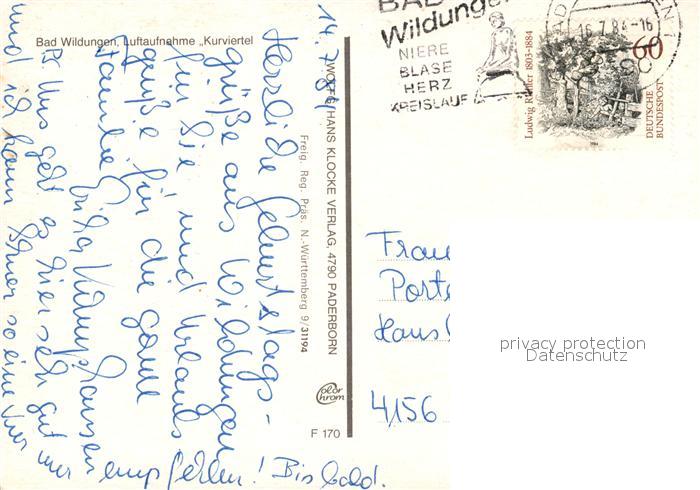 Bad Wildungen, Luftaufnahme „Kurviertel
14.7.84
Herzliche Geburtstags-
grüße aus Wildungen
für Sie und Urlaubs
grüße für die ganze
Familie
Uns geht es hier sehr gut
und ich kann Ihnen so eine Kur nur
empfehlen! Bis bald.
HANS KLOCKE VERLAG, 4790 PADERBORN
Freig. Reg. Präs. N.-Württemberg 9/31194
color
chrom
F 170
BAD
Wildungen
NIERE
BLASE
HERZ
KREISLAUF
16.7.84-16
60
Ludwig Richter 1803-1884
DEUTSCHE
BUNDESPOST
1984
Frau
Porte
Hans
4156
privacy protection
Datenschutz